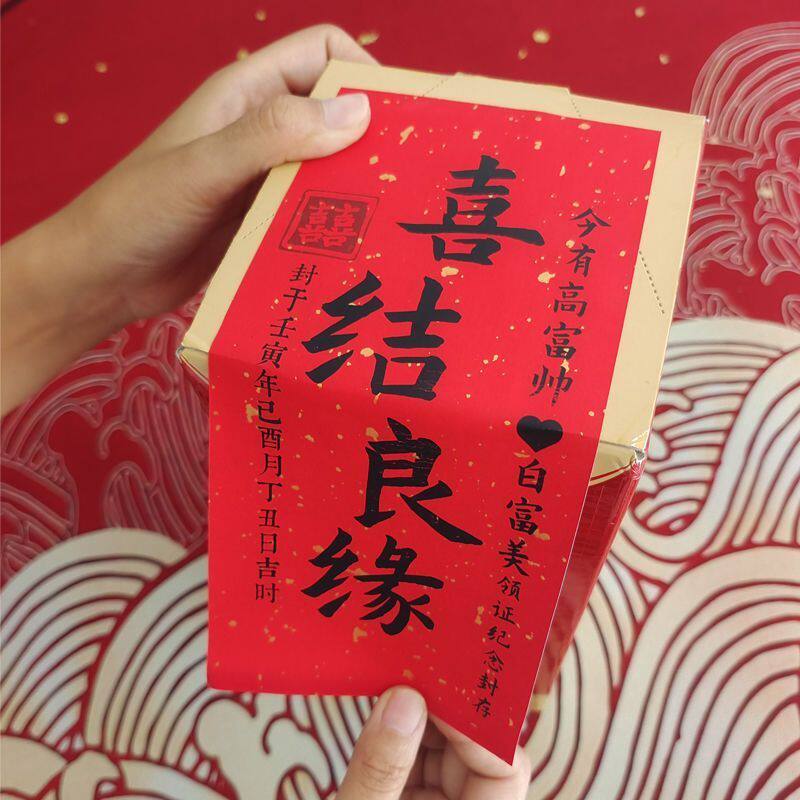 今有高富帅♥白富美领证纪念封存
喜结良缘
囍
封于壬寅年己酉月丁丑日吉时